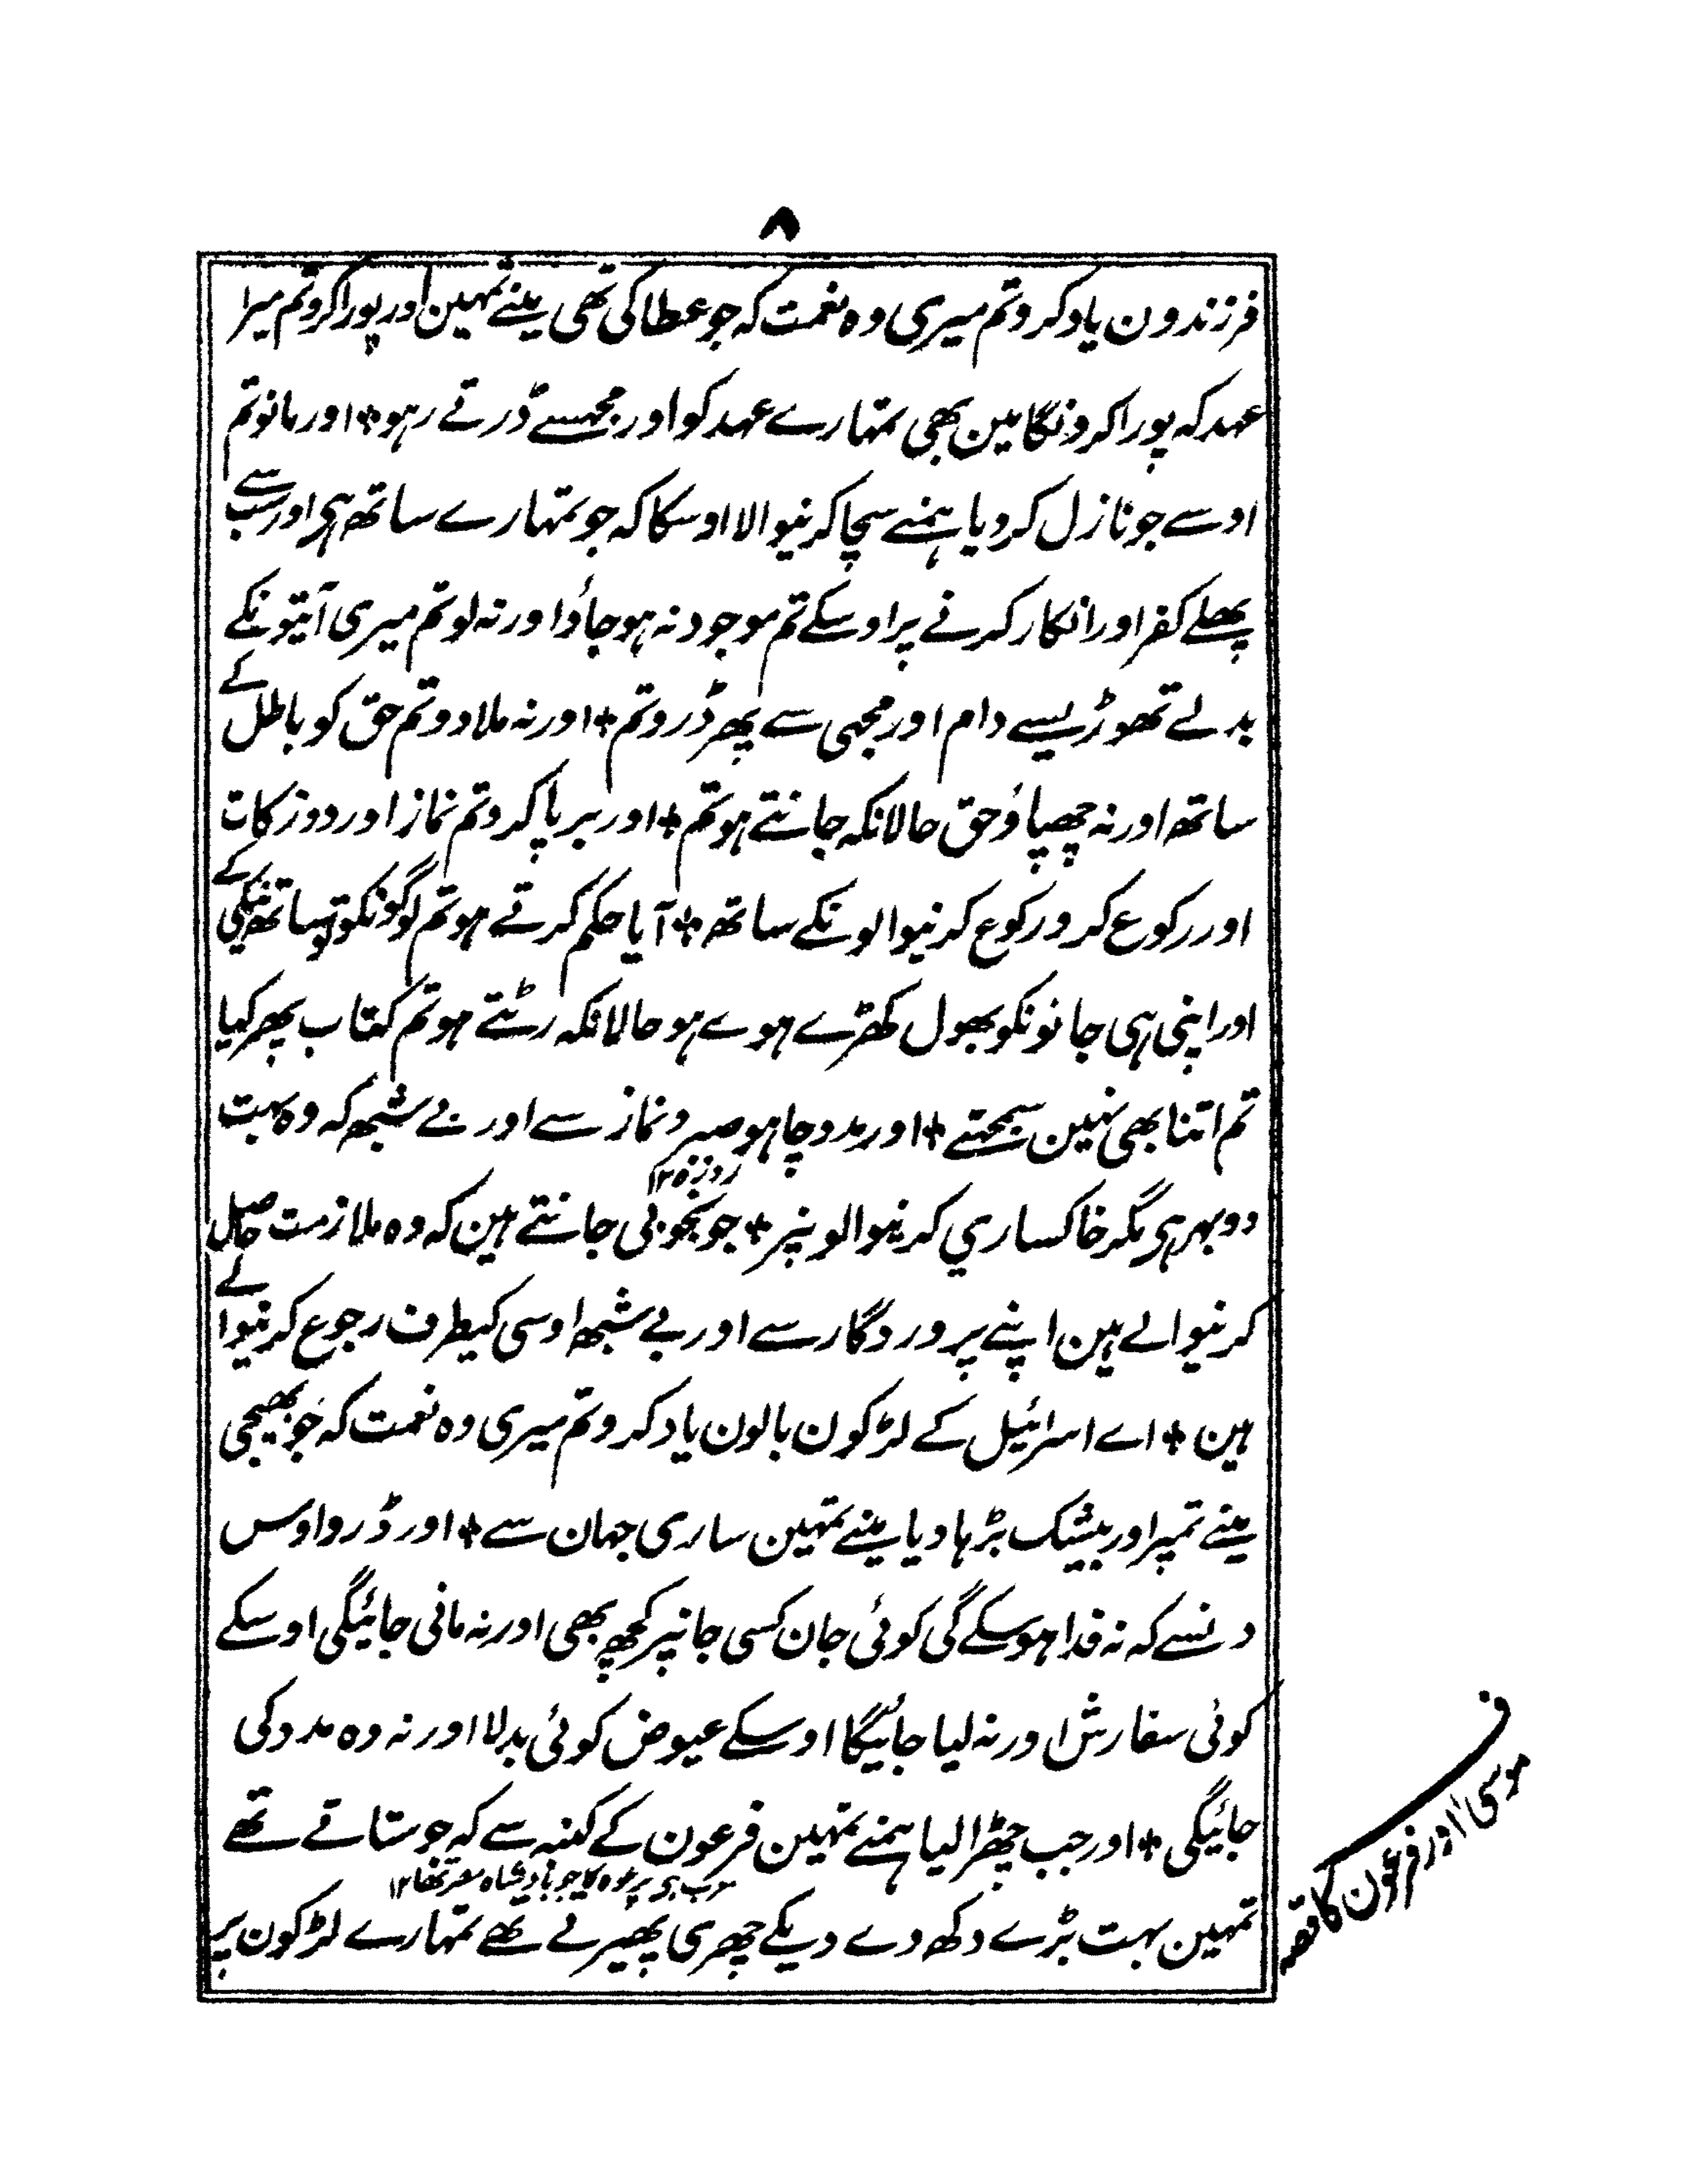 ۸
فرزندون یاد کرو تم میری وہ نعمت کہ جو عطا کی تھی مینے تمہین اور پورا کرو تم میرا
عہد کہ پورا کرونگا مین بھی تمہارے عہد کو اور مجہسے ڈرتے رہو ٭ اور مانو تم
اوسے جو نازل کر دیا ہمنے سچا کرنیوالا اوسکا کہ جو تمہارے ساتھ ہی اور سب سے
پھلے کفر اور انکار کرنے پر اوسکے تم موجود نہ ہو جاؤ اور نہ لو تم میری آیتونکے
بدلے تھوڑیسے دام اور مجہی سے پھر ڈرو تم ٭ اور نہ ملا دو تم حق کو باطل کے
ساتھ اور نہ چھپاؤ حق حالانکہ جانتے ہو تم ٭ اور برپا کرو تم نماز اور دو زکات
اور رکوع کرو رکوع کرنیوالونکے ساتھ ٭ آیا حکم کرتے ہو تم لوگونکو تو ساتھ نیکی کے
اور اپنی ہی جانونکو بھول کھڑے ہوے ہو حالانکہ رٹتے ہو تم کتاب پھر کیا
تم اتنا بھی نہین سمجہتے ٭ اور مدد چاہو صبر و نماز سے اور بے شبھہ کہ وہ بہت
روزہ ۱۲
دوبہر ہی مگر خاکساري کرنیوالونپر ٭ جو بخوبی جانتے ہین کہ وہ ملازمت حاصل
کرنیوالے ہین اپنے پروردگار سے اور بے شبھہ اوسی کیطرف رجوع کرنیوالے
ہین ٭ اے اسرائیل کے لڑکون بالون یاد کرو تم میری وہ نعمت کہ جو بھیجی
مینے تمپر اور بیشک بڑہا دیا مینے تمہین ساری جہان سے ٭ اور ڈرو اوس
دنسے کہ نہ فدا ہو سکے گی کوئی جان کسی جانپر کچھ بھی اور نہ مانی جائیگی اوسکے
کوئی سفارش اور نہ لیا جائیگا اوسکے عیوض کوئی بدلا اور نہ وہ مدد کی
جائیگی ٭ اور جب چھڑا لیا ہمنے تمہین فرعون کے کنبہ سے کہ جو ستاتے تھے
جو بادشاہ مصر تھا ۱۲
تمہین بہت بڑے دکھ دے دیکے چھری پھیرتے تھے تمہارے لڑکون پر
ف
موسیٰ اور فرعون کا قصہ